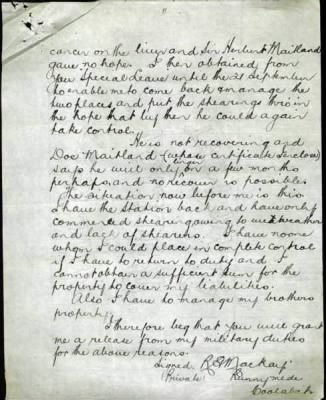 11
cancer on the liver and Sir Herbert Maitland
gave no hope. I then obtained from
you Special Leave until the 21 September
to enable me to come back & manage the
two places and put the shearings thro in
the hope that by then he could again
take control.
He is not recovering and
Doc Maitland (whose certificate I enclose)
says he will only linger on a few months
perhaps and no recover is possible.
The situation now before me is this
I have the station back and have only
commenced shearing owing to wet weather
and lack of shearers. I have no one
whom I could place in complete control
if I have to return to duty and I
cannot obtain a sufficient sum for the
property to cover my liabilities.
Also I have to manage my brothers
property.
I therefore beg that you will grant
me a release from my military duties
for the above reasons.
Signed R E Mackay
Private Runnymede
Coolabah